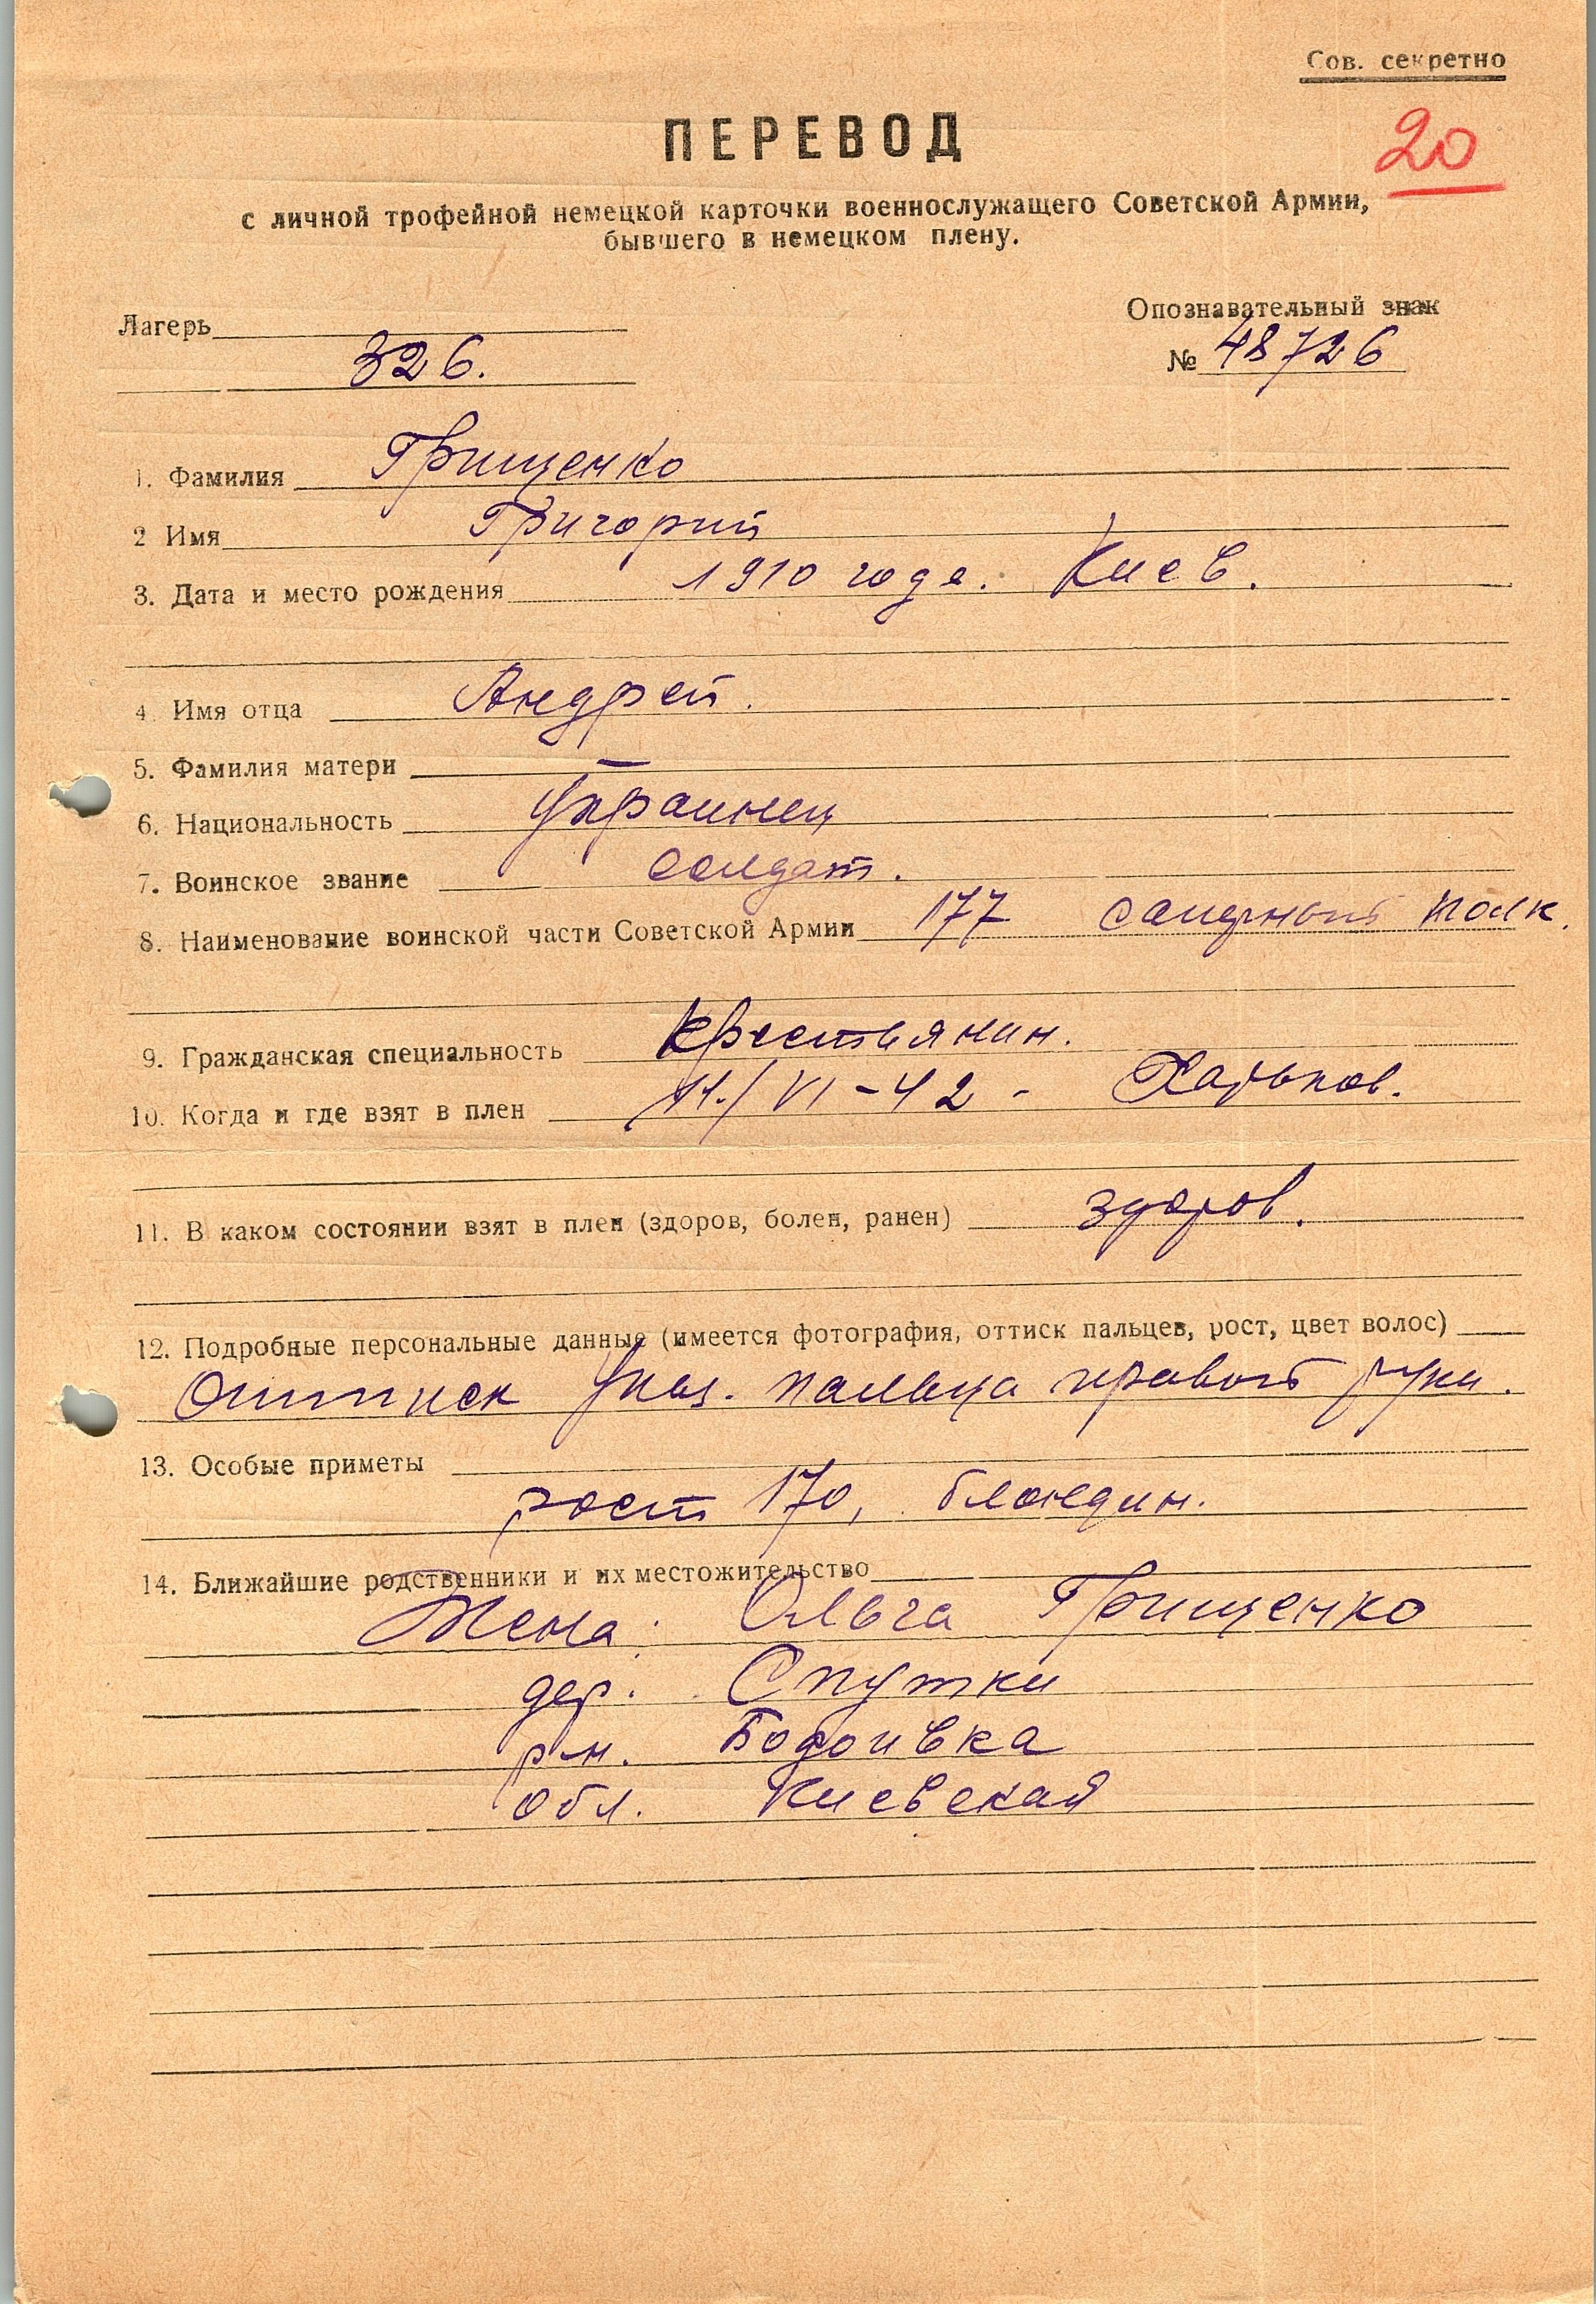 Сов. секретно
20
ПЕРЕВОД
с личной трофейной немецкой карточки военнослужащего Советской Армии,
бывшего в немецком плену.
Лагерь
326.
Опознавательный знак
№ 48726
1. Фамилия Грищенко
2 Имя Григорий
3. Дата и место рождения 1910 года. Киев.
4. Имя отца Андрей.
5. Фамилия матери —
6. Национальность Украинец
7. Воинское звание солдат.
8. Наименование воинской части Советской Армии 177 саперный полк.
9. Гражданская специальность Крестьянин.
10. Когда и где взят в плен 11./VI-42 - Харьков.
11. В каком состоянии взят в плен (здоров, болен, ранен) здоров.
12. Подробные персональные данные (имеется фотография, оттиск пальцев, рост, цвет волос)
Оттиск Указ. пальца правой руки.
13. Особые приметы
рост 170, блондин.
14. Ближайшие родственники и их местожительство
Жена: Ольга Грищенко
дер. Спутки
р-н.
обл. Киевская